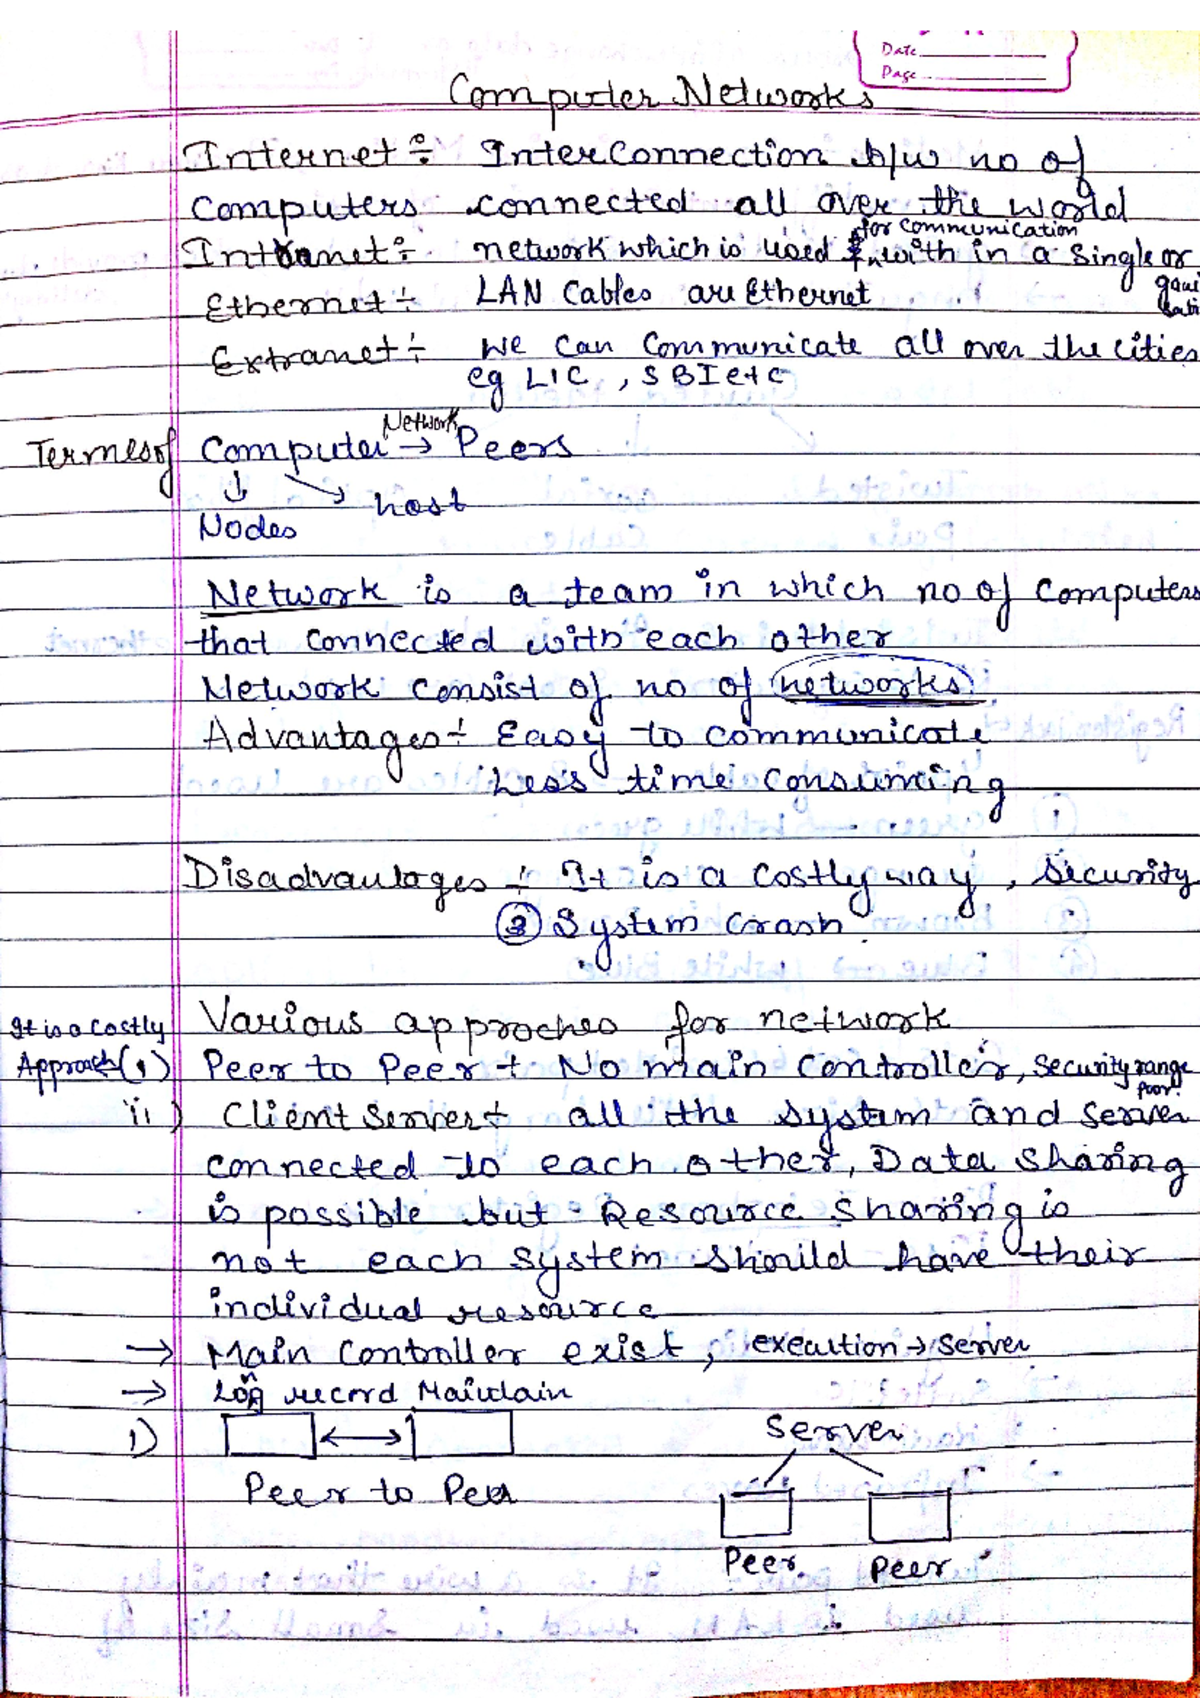 Date
Page
Computer Networks
Internet ÷ InterConnection b/w no of
Computers connected all over the world
for communication
Intranet ÷ network which is used with in a single or
Ethernet ÷ LAN Cables are Ethernet
Extranet ÷ we can communicate all over the cities
eg LIC , SBI etc
Network
Termes of Computer → Peers
↓ ↘ host
Nodes
Network is a team in which no of Computers
that connected with each other
Network consist of no of networks
Advantages ÷ Easy to communicate
Less time consuming
Disadvantages ÷ It is a costly way , Security
System Crash
Various approches for network
It is a costly
Approach (i) Peer to Peer ÷ No main controller, Security range
poor.
ii) Client Server ÷ all the system and server
connected to each other, Data sharing
is possible but Resource sharing is
not each system should have their
individual resource
→ Main controller exist, execution → server
→ record Maintain
1) ↔ Server
Peer to Peer
Peer Peer